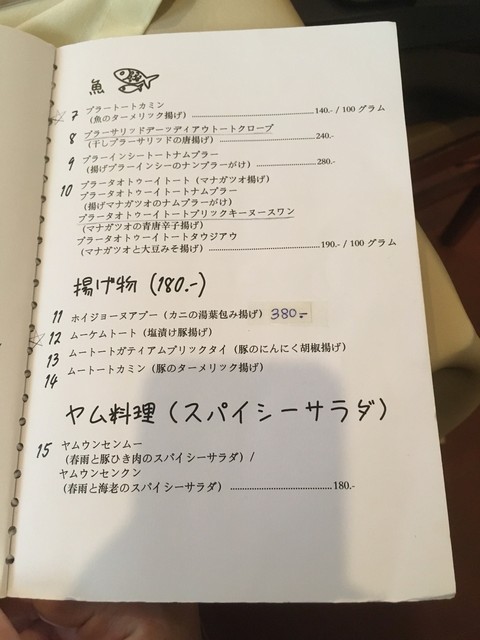 魚
7 プラートートカミン
(魚のターメリック揚げ) 140.- / 100 グラム
8 プラーサリッドデーツディアウトートクローブ
(干しプラーサリッドの唐揚げ) 240.-
9 プラーインシートートナムプラー
(揚げプラーインシーのナンプラーがけ) 280.-
10 プラータオトゥーイトート (マナガツオ揚げ)
プラータオトゥーイトートナムプラー
(揚げマナガツオのナムプラーがけ)
プラータオトゥーイトートプリックキーヌースワン
(マナガツオの青唐辛子揚げ)
プラータオトゥーイトートタウジアウ
(マナガツオと大豆みそ揚げ) 190.- / 100 グラム
揚げ物 (180.-)
11 ホイジョーヌアプー (カニの湯葉包み揚げ) 380.-
12 ムーケムトート (塩漬け豚揚げ)
13 ムートートガティアムプリックタイ (豚のにんにく胡椒揚げ)
14 ムートートカミン (豚のターメリック揚げ)
ヤム料理 (スパイシーサラダ)
15 ヤムウンセンムー
(春雨と豚ひき肉のスパイシーサラダ) /
ヤムウンセンクン
(春雨と海老のスパイシーサラダ) 180.-